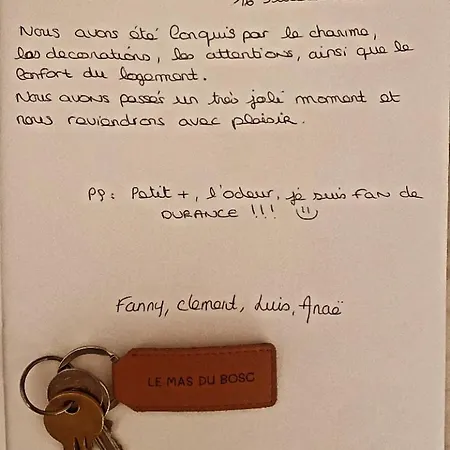 Nous avons été Conquis par le charme,
les decorations, les attentions, ainsi que le
Confort du logement.
Nous avons passés un très joli moment et
nous reviendrons avec plaisir.
PS: Petit +, l'odeur, je suis FAN de
DURANCE !!!
Fanny, Clement, Luis, Anaë
LE MAS DU BOSC